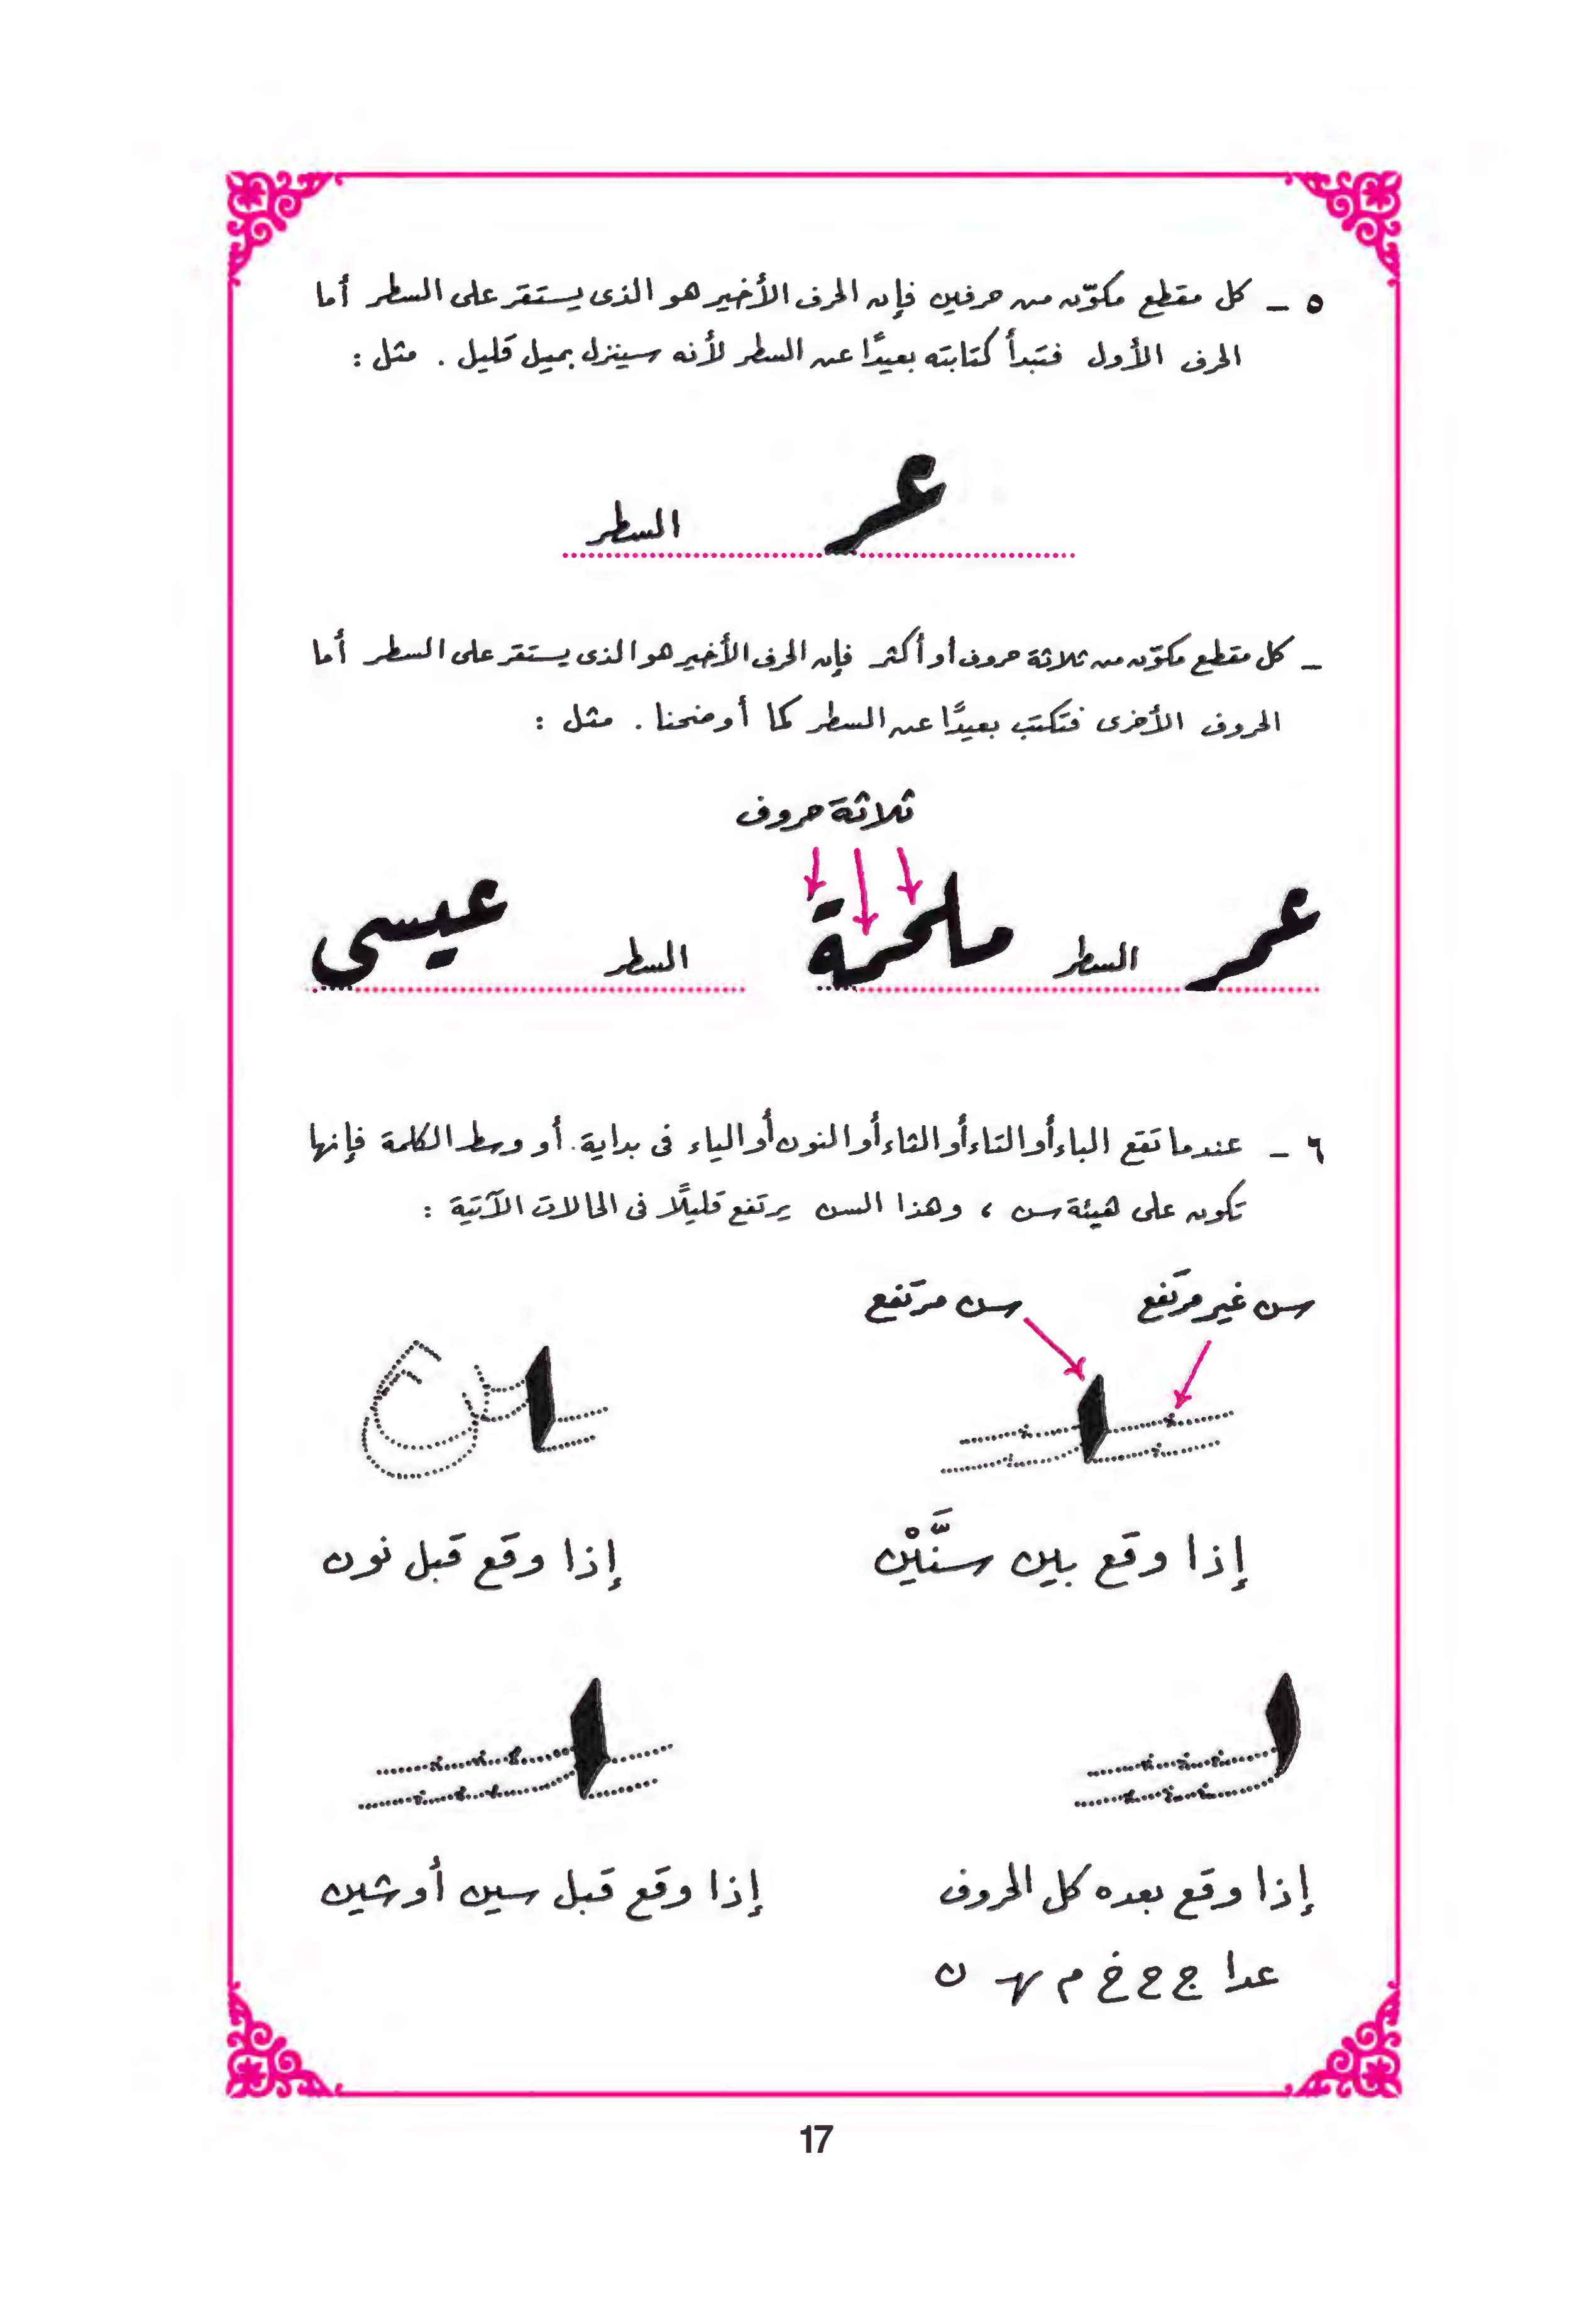 ٥ - كل مقطع مكوّن من حرفين فإن الحرف الأخير هو الذى يستقر على السطر أما
الحرف الأول فتبدأ كتابته بعيدًا عن السطر لأنه سينزل بميل قليل . مثل :
عر
السطر
- كل مقطع مكوّن من ثلاثة حروف أو أكثر فإن الحرف الأخير هو الذى يستقر على السطر أما
الحروف الأخرى فتكتب بعيدًا عن السطر كما أوضحنا . مثل :
ثلاثة حروف
عمر السطر ملحمة السطر عيسى
٦ - عندما تقع الباء أو التاء أو الثاء أو النون أو الياء فى بداية أو وسط الكلمة فإنها
تكون على هيئة سن ، وهذا السن يرتفع قليلًا فى الحالات الآتية :
سن غير مرتفع سن مرتفع
إذا وقع بين سنَّيْن إذا وقع قبل نون
إذا وقع بعده كل الحروف إذا وقع قبل سين أو شين
عدا ج ح خ م ه ن
17